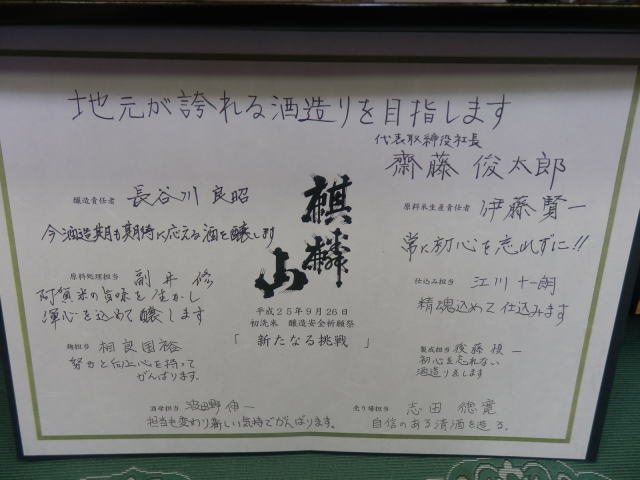 地元が誇れる酒造りを目指します
代表取締役社長
齋藤 俊太郎
醸造責任者 長谷川 良昭
今酒造期も期待に応える酒を醸します
原料米生産責任者 伊藤賢一
常に初心を忘れずに!!
麒麟山
平成25年9月26日
初洗米 醸造安全祈願祭
「新たなる挑戦」
原料処理担当 修
阿賀米の旨味を生かし
渾心を込めて醸します
仕込み担当 江川 十一朗
精魂込めて仕込みます
麹担当 相良国裕
努力と向上心を持って
がんばります。
製成担当 後藤 一
初心を忘れない
酒造りをします
酒母担当 波田野 伸一
担当も変わり新しい気持でがんばります。
売り場担当 志田 徳寛
自信のある清酒を造る。